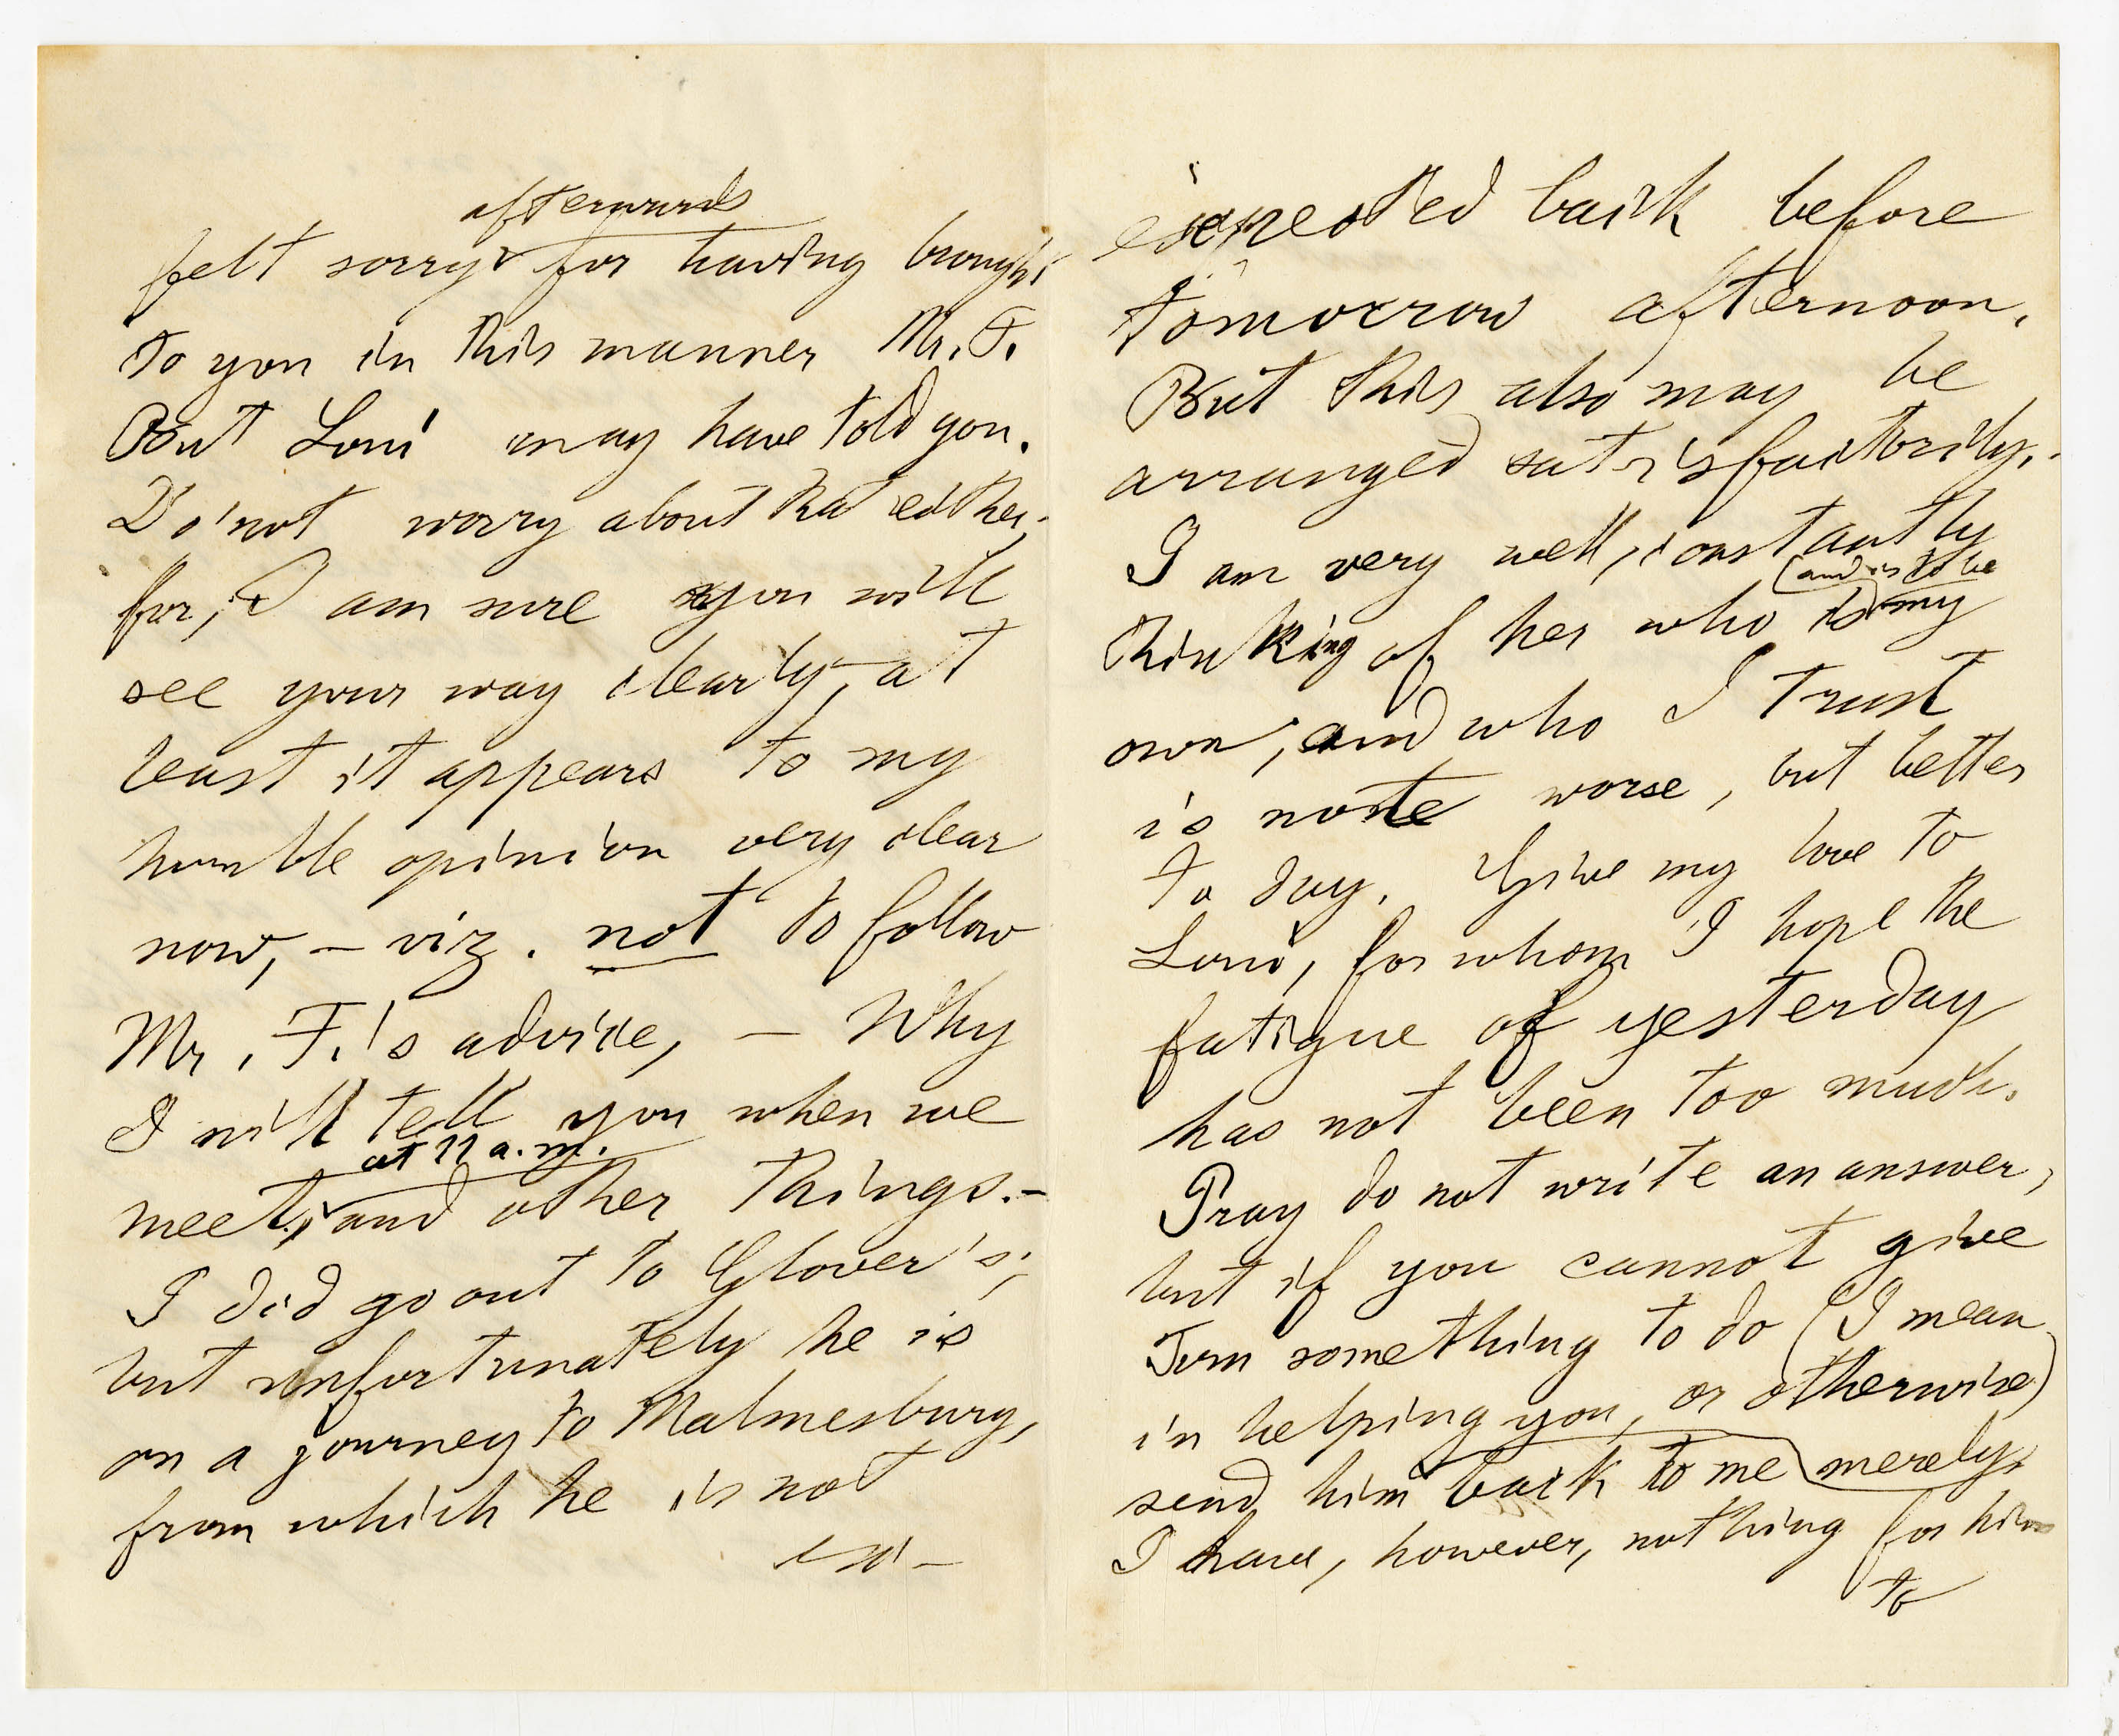 afterwards
felt sorry for having brought
to you in this manner Mr. F.
But Loui may have told you.
Do not worry about that either,
for, I am sure you will
see your way clearly, at
least it appears to my
humble opinion very clear
now, – viz. not to follow
Mr. F.'s advice, – Why
I will tell you when we
at 11 a.m.
meet, and other things. –
I did go out to Glover's;
but unfortunately he is
on a journey to Malmesbury,
from which he is not
ex–
expected back before
tomorrow afternoon.
But this also may be
arranged satisfactorily.
I am very well, constantly
(and is to be)
thinking of her who is my
own, and who I trust
is none worse, but better
to day. Give my love to
Loui, for whom I hope the
fatigue of yesterday
has not been too much.
Pray do not write an answer,
but if you cannot give
Tom something to do (I mean
in helping you, or otherwise)
send him back to me merely.
I have, however, nothing for him
to